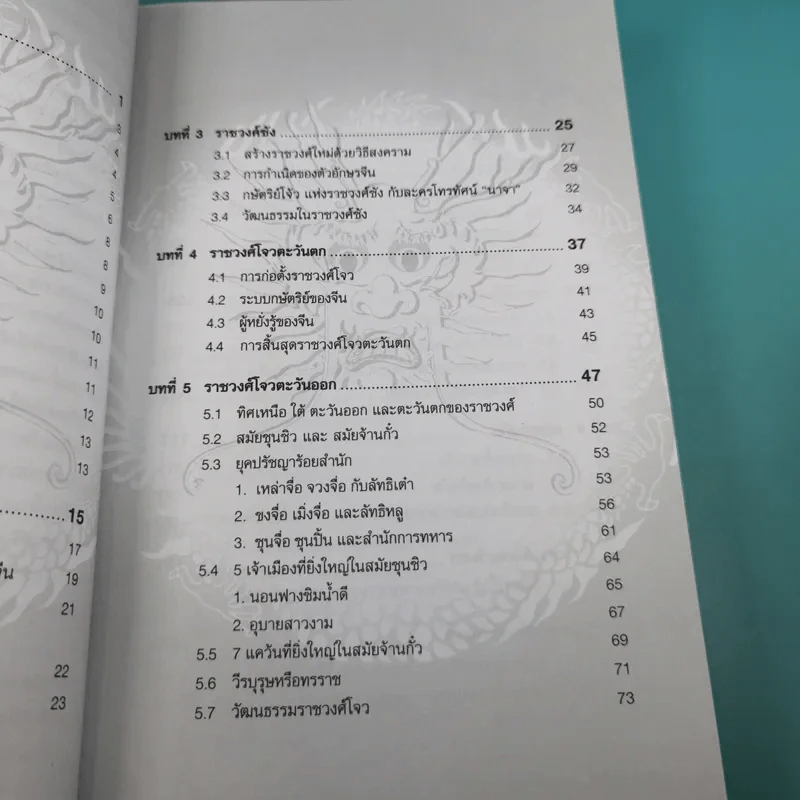 1
3
4
4
5
6
8
8
9
10
10
11
11
12
13
13
15
17
จีน 19
21
22
23
บทที่ 3 ราชวงศ์ซัง 25
3.1 สร้างราชวงศ์ใหม่ด้วยวิธีสงคราม 27
3.2 การกำเนิดของตัวอักษรจีน 29
3.3 กษัตริย์โจ้ว แห่งราชวงศ์ซัง กับละครโทรทัศน์ "นาจา" 32
3.4 วัฒนธรรมในราชวงศ์ซัง 34
บทที่ 4 ราชวงศ์โจวตะวันตก 37
4.1 การก่อตั้งราชวงศ์โจว 39
4.2 ระบบกษัตริย์ของจีน 41
4.3 ผู้หยั่งรู้ของจีน 43
4.4 การสิ้นสุดราชวงศ์โจวตะวันตก 45
บทที่ 5 ราชวงศ์โจวตะวันออก 47
5.1 ทิศเหนือ ใต้ ตะวันออก และตะวันตกของราชวงศ์ 50
5.2 สมัยชุนชิว และ สมัยจ้านกั๋ว 52
5.3 ยุคปรัชญาร้อยสำนัก 53
1. เหล่าจื่อ จวงจื่อ กับลัทธิเต๋า 53
2. ขงจื่อ เมิ่งจื่อ และลัทธิหลู 56
3. ซุนจื่อ ซุนปิ้น และสำนักการทหาร 61
5.4 5 เจ้าเมืองที่ยิ่งใหญ่ในสมัยชุนชิว 64
1. นอนฟางชิมน้ำดี 65
2. อุบายสาวงาม 67
5.5 7 แคว้นที่ยิ่งใหญ่ในสมัยจ้านกั๋ว 69
5.6 วีรบุรุษหรือทรราช 71
5.7 วัฒนธรรมราชวงศ์โจว 73